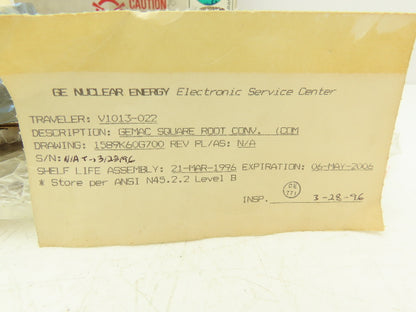 CAUTION
GE NUCLEAR ENERGY Electronic Service Center
TRAVELER: V1013-022
DESCRIPTION: GEMAC SQUARE ROOT CONV. (COM
DRAWING: 1589K60G700 REV PL/AS: N/A
S/N: N/A 3/28/96
SHELF LIFE ASSEMBLY: 21-MAR-1996 EXPIRATION: 06-MAY-2006
* Store per ANSI N45.2.2 Level B
INSP. 3-28-96